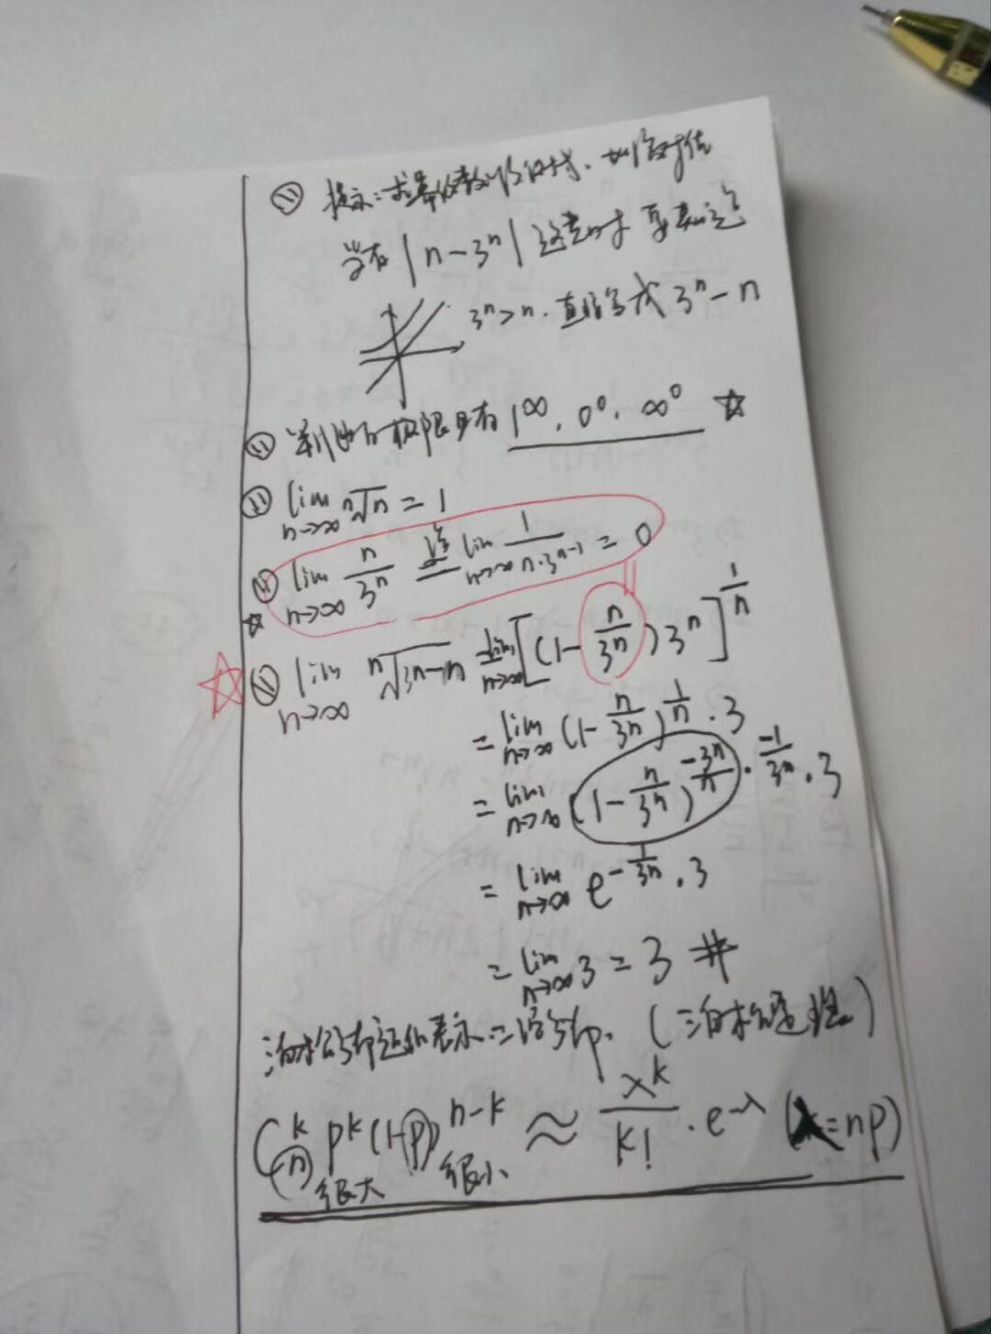 提示:求幂级数
当有 |n-3ⁿ| 这类时
3ⁿ>n. 直接写成 3ⁿ-n
极限只有 1^∞, 0⁰, ∞⁰ ☆
lim_{n→∞} ⁿ√n = 1
lim_{n→∞} n/3ⁿ 洛 lim_{n→∞} 1/(n·3^{n-1}) = 0
☆ lim_{n→∞} ⁿ√(3ⁿ-n) = lim_{n→∞} [(1-n/3ⁿ)3ⁿ]^{1/n}
= lim_{n→∞} (1-n/3ⁿ)^{1/n}·3
= lim_{n→∞} (1-n/3ⁿ)^{-3ⁿ/n · -1/3ⁿ}·3
= lim_{n→∞} e^{-1/3ⁿ}·3
= lim_{n→∞} 3 = 3 #
泊松分布近似表示二项分布. (泊松定理)
C_n^k p^k (1-p)^{n-k} ≈ λ^k/k! · e^{-λ} (λ=np)
很大 很小